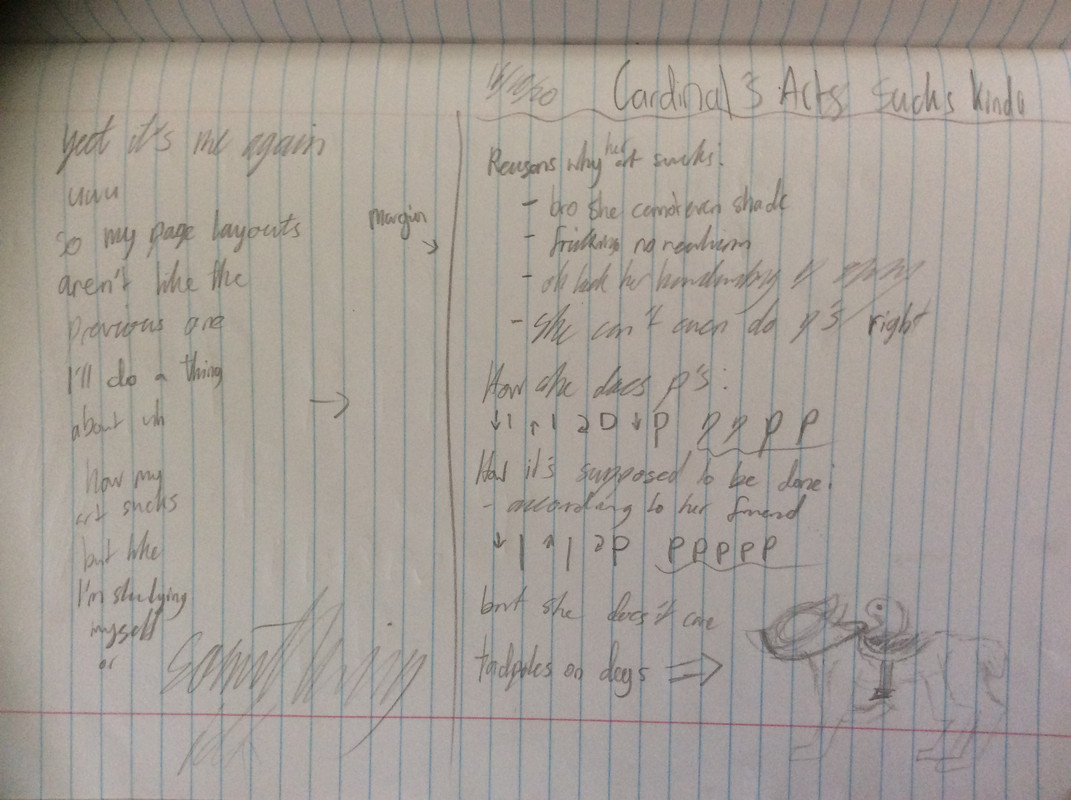 yeet it's me again
uwu
so my page layouts
aren't like the
previous one
I'll do a thing
about uh
how my
art sucks
but like
I'm studying
myself
or
something
margin
Cardinal's Arts Sucks Kinda
Reasons why her art sucks:
- bro she cannot even shade
- fricking no realism
- her
- she can't even do p's right
How she does p's:
↓ 1 ↑ 1 2 D ↓ p p p p p
How it's supposed to be done:
- according to her friend
↓ | ↑ | 2 p p p p p p
but she does't care
tadpoles on dogs ⇒